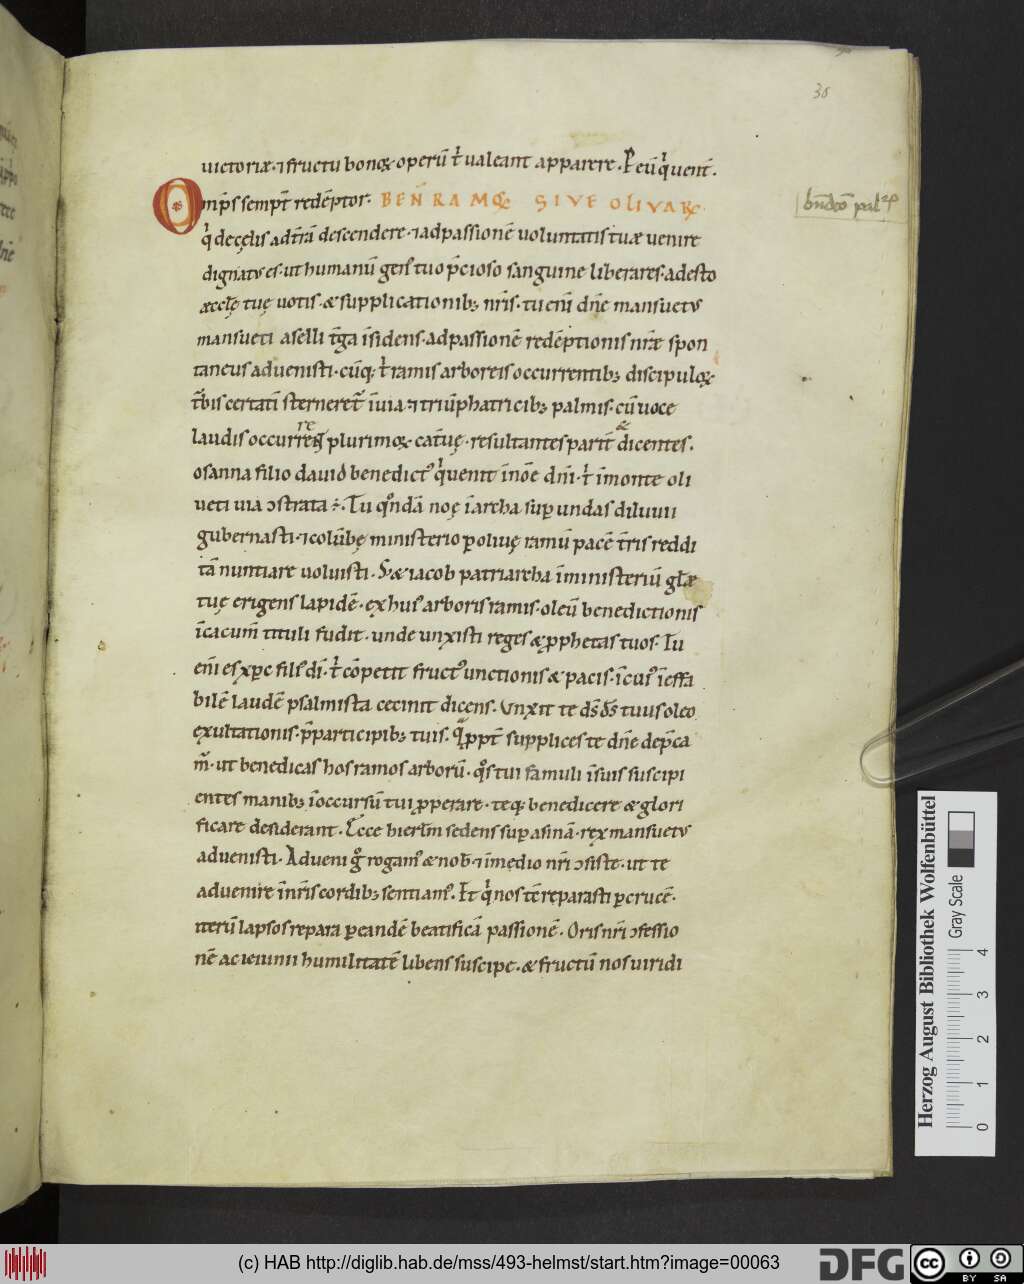 30
uictoriæ· ⁊ fructu bonoꝝ operū t᷑ ualeant apparere. P eū q̇ uenit᷑.
Omp̄s sempt̄ redēptor· BEN̄ RAMOꝜ SIVE OLIVARꝜ
bn̄dc̄o pal
q̇ de cęlis ad t̄rā descendere· ⁊ ad passionē uoluntatis tuæ uenire
dignatus es· ut humanū gen᷒ tuo p̄cioso sanguine liberares· adesto
æccłę tuę uotis· & supplicationib; nr̄is· tu eni̅ dn̄e mansuetus
mansueti aselli t̄ga īsidens· ad passionē redēptionis nr̄æ spon
taneus aduenisti· cūq; t᷑ ramis arboreis occurrentib; discipuloꝝ
t᷑bis certati̅ sterneret᷑ īuia· ⁊ triūphatricib; palmis· cū uoce
laudis occurreret plurimoꝝ cat᷑uę· resultantes parit᷑ & dicentes·
osanna filio dauid benedict᷒ q̇ uenit īnoē dn̄i· t᷑ īmonte oli
ueti uia ↄstrata ÷· Tu qͦndā noę īarcha suꝑ undas diluuii
gubernasti· ⁊ colūbę ministerio ꝑ oliuę ramū pacē t̄ris reddi
tā nuntiare uoluisti· Sꝫ & iacob patriarcha īministeriū głæ
tuę erigens lapidē· ex hui᷒ arboris ramis· oleū benedictionis
īcacum̄ tituli fudit· unde unxisti reges & ꝓphetas tuos· Tu
eni̅ es xp̄c fili᷒ di̅· t᷑ cōpetit fruct᷒ unctionis & pacis· īcui᷒ īeffa
bilē laudē psalmista cecinit dicens. Unxit te ds̄ ds̄ tuus oleo
exultationis· p̄ participib; tuis. Qͣꝓpt᷑ supplices te dn̄e dep̄ca
m᷑· ut benedicas hos ramos arborū· qͦs tui famuli īsuis suscipi
entes manib; īoccursū tui ꝓperare· teq; benedicere & glori
ficare desiderant· Ecce hierłm sedens suꝑ asinā· rex mansuetus
aduenisti· Adueni gͦ rogam᷒ & nob̄· ⁊ īmedio nr̄i ↄsiste· ut te
aduenire īnr̄is cordib; sentiam᷒. Et q̇ nos tē reparasti ꝑ crucē·
iterū lapsos repara ꝑ eandē beatificā passionē· Oris nr̄i ↄfessio
nē ac ieiunii humilitatē libens suscipe· & fructū nos uiridi
Herzog August Bibliothek Wolfenbüttel
Gray Scale
0 1 2 3 4
(c) HAB http://diglib.hab.de/mss/493-helmst/start.htm?image=00063
DFG
cc BY SA